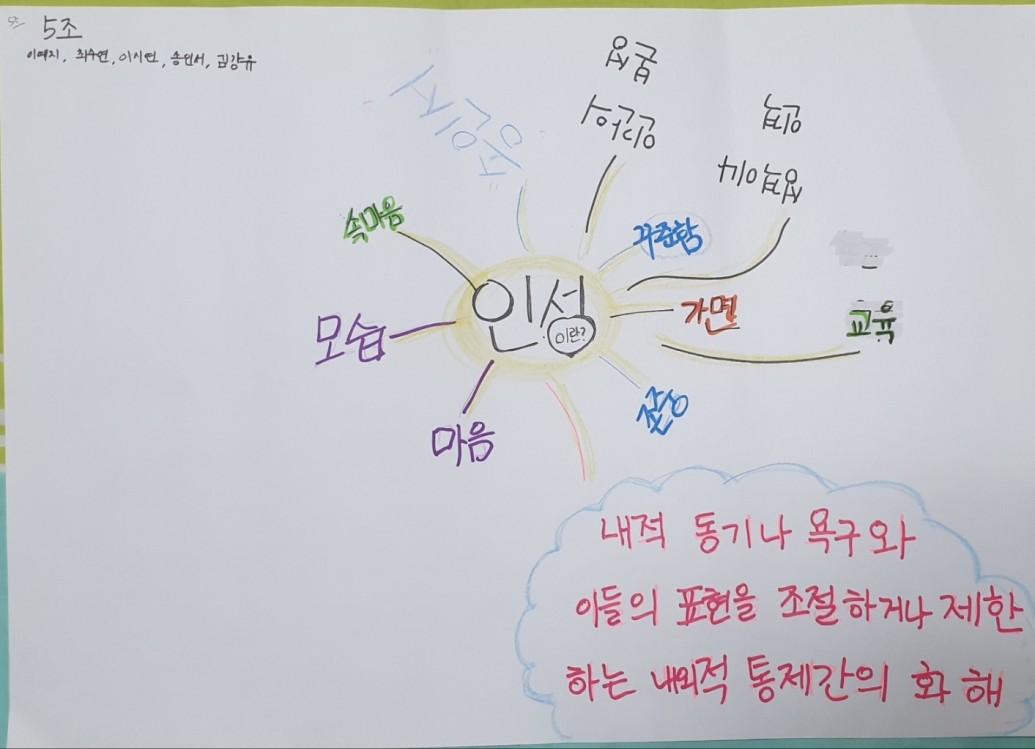 5조
이예지, 최수연, 이시연, 송인서, 김강유
속마음
꾸준함
인성
이란?
가면
교육
모습
마음
본성
내적 동기나 욕구와
이들의 표현을 조절하거나 제한
하는 내외적 통제간의 화해